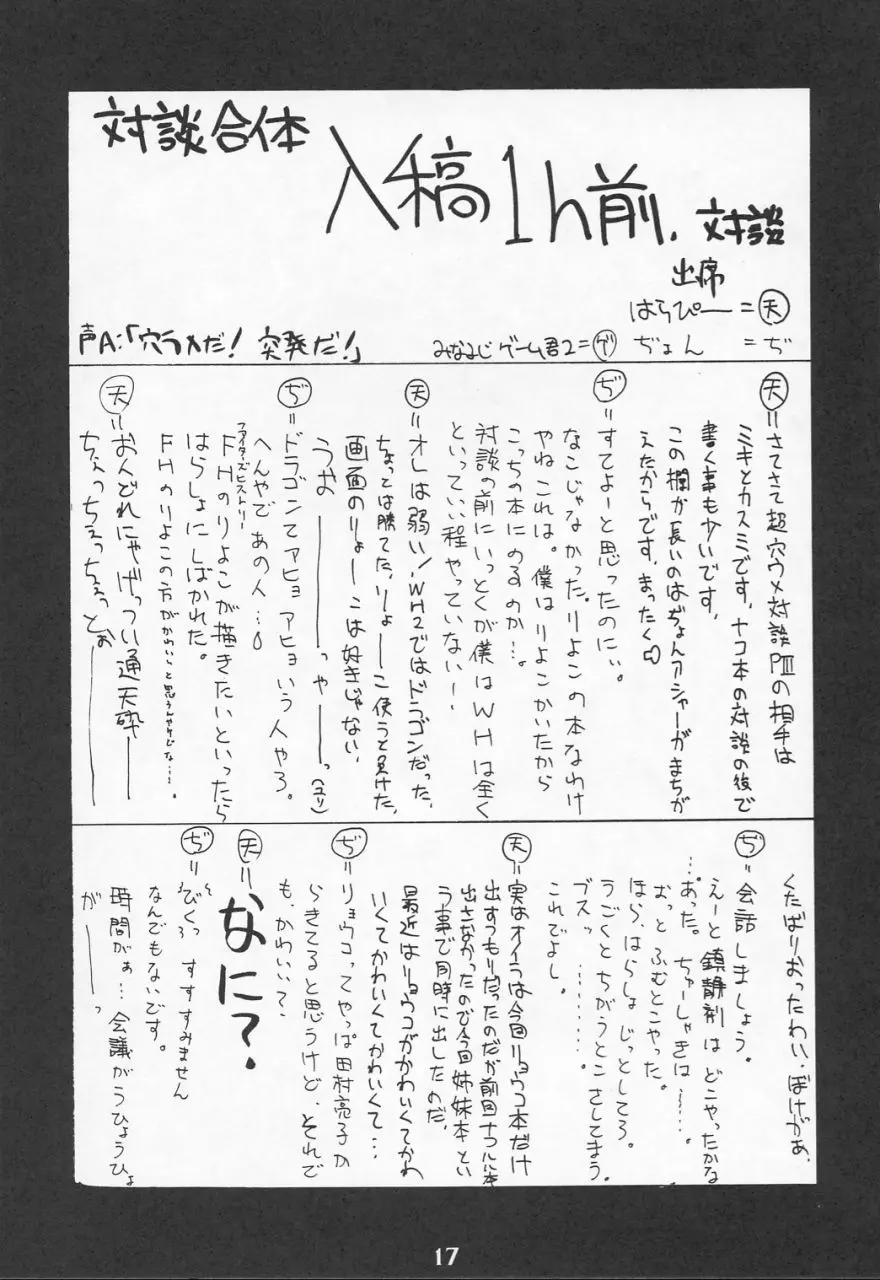 対談合体
入稿1h前.対談
出席
はらぴー=天
みなみじゲーム君2=ゲ ぢょん =ぢ
声A:「穴ウメだ! 突発だ!」
天=さてさて超穴ウメ対談PⅢの相手は
ミキとカスミです、ナコ本の対談の後で
書く事も少いです、
この欄が長いのはぢょんアシャーがまちが
えたからです、まったく
ぢ=すてよーと思ったのに、
なこじゃなかった。りよこの本なわけ
やねこれは。僕はりよこかいたから
こっちの本にのるのか…。
対談の前にいっとくが僕はWHは全く
といっていい程やっていないー、
天=オレは弱い!、WH2ではドラゴンだった、
ちょっとは勝てた、りょーこ使うと負けた、
画面のりょーこは好きじゃない、
うおーーっやーっ(ユリ)
ぢ=ドラゴンてアヒョアヒョいう人やろ。
へんやであの人…。
ファイターズヒストリー
FHのりよこが描きたいといったら
はらしょにしばかれた。
FHのりよこの方がかわいいと思うんやけどな…。
天=おんどれにゃげっつい通天砕ーー
ちぇっちぇっちぇっとぉーーー
くたばりおったわい、ぼけがぁ、
ぢ=会話しましょう。
えーと鎮静剤はどこやったかな
…あった。ちゅーしゃきは……。
おっとふむとこやった。
ほら、はらしょじっとしてろ。
うごくとちがうとこさしてしまう。
ブスッ………。
これでよし。
天=実はオイラは今回リョウコ本だけ
出すつもりだったのだが前回ナコルル本
出さなかったので今回姉妹本とい
う事で同時に出したのだ、
最近はリョウコがかわいくてかわ
いくてかわいくてかわいくて…
ぢ=リョウコってやっぱ田村亮子か
らきてると思うけど、それで
も、かわいい?、
天=なに?、
ぢ=びくっ すすすみません
なんでもないです。
時間がぁ…会議がうひょうひょ
がーーっ
17